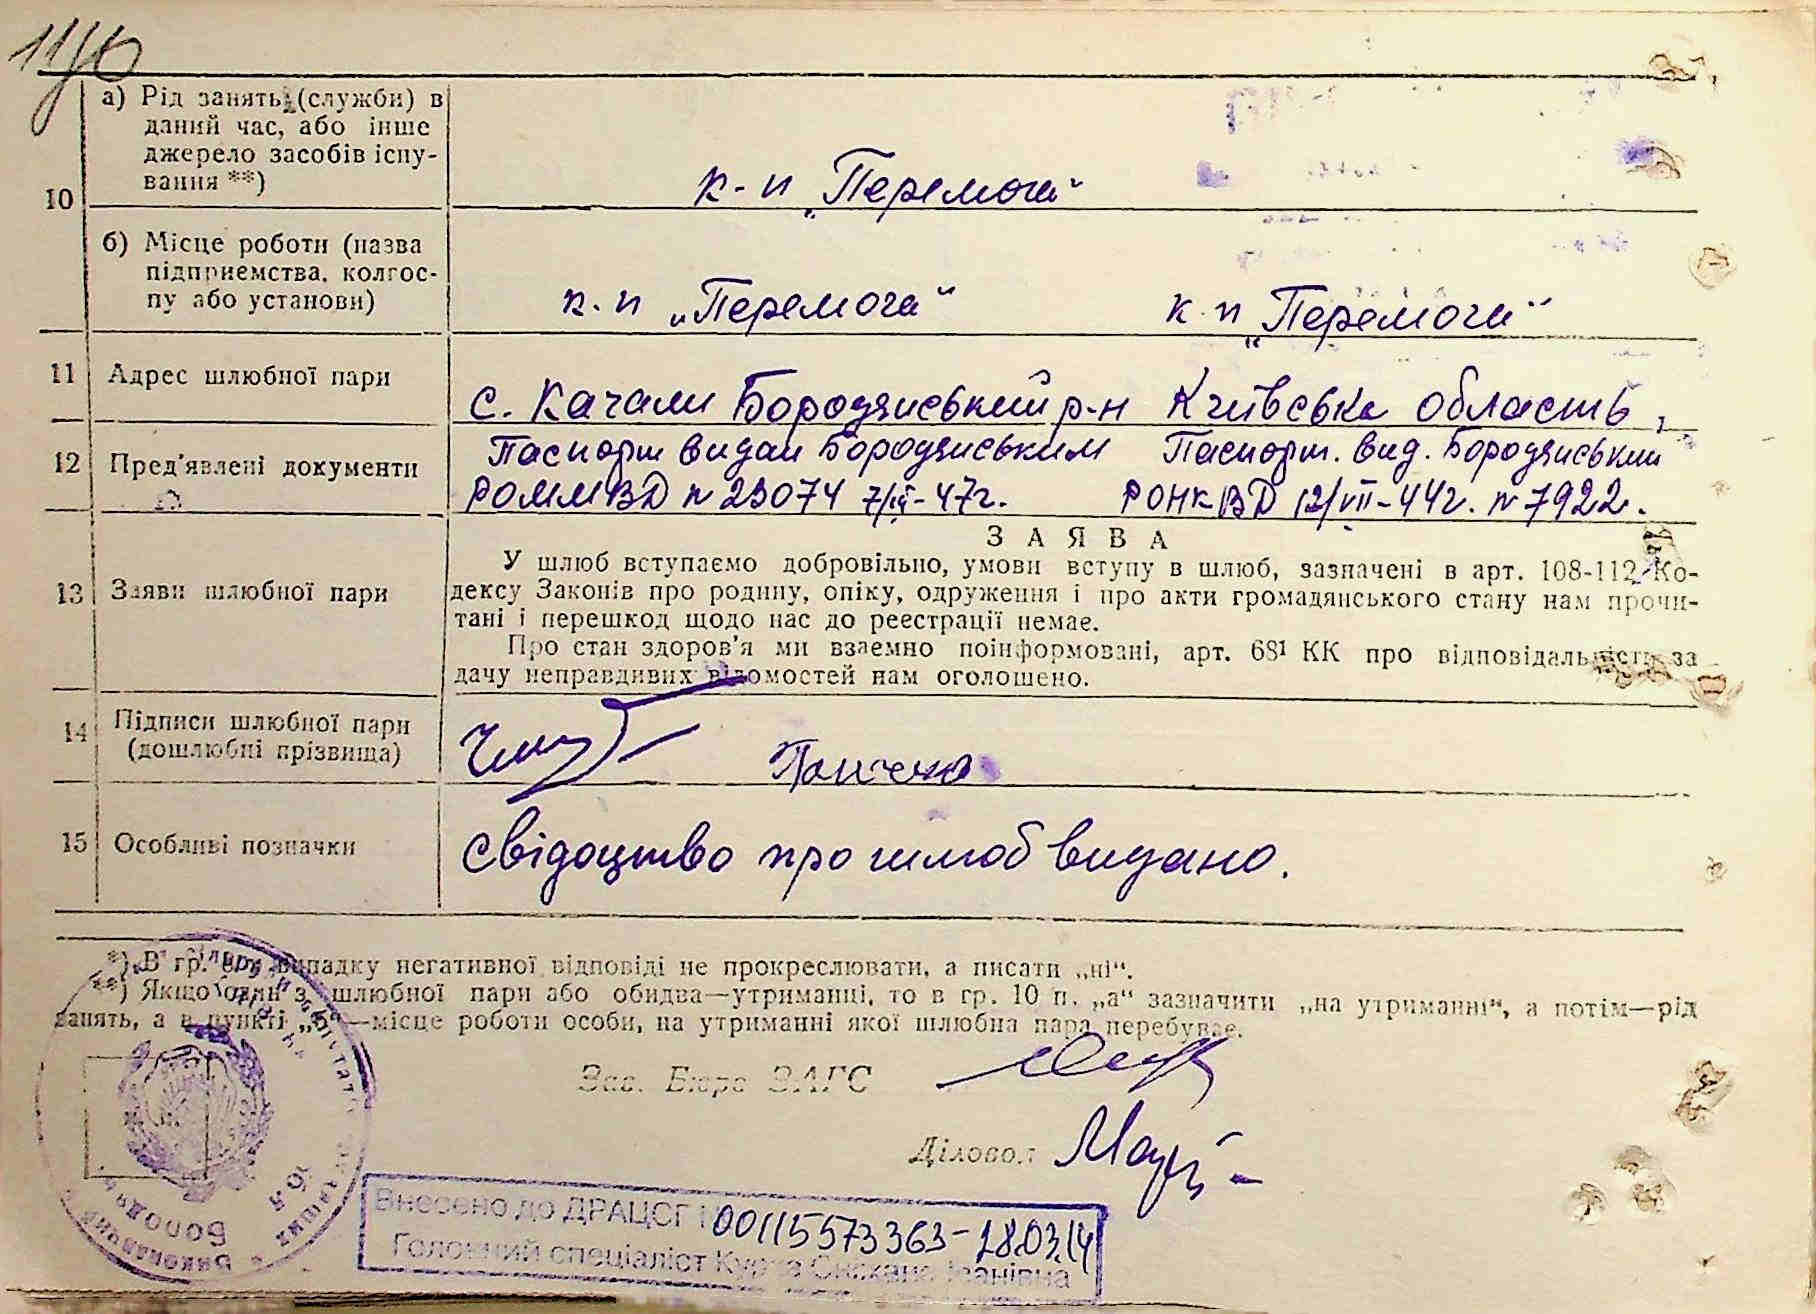 10
а) Рід занять (служби) в
даний час, або інше
джерело засобів існу-
вання **)
к-п „Перемога“
б) Місце роботи (назва
підприємства, колгос-
пу або установи)
к.п „Перемога“ к.п „Перемога“
11 Адрес шлюбної пари
с. Качали Бородянський р-н Київська область,
12 Пред'явлені документи
Паспорт видан Бородянським Паспорт. вид. Бородянським
РОММВД № 23074 7/IX-47г. РОНКВД 12/VII-44г. № 7922.
13 Заяви шлюбної пари
ЗАЯВА
У шлюб вступаємо добровільно, умови вступу в шлюб, зазначені в арт. 108-112 Ко-
дексу Законів про родину, опіку, одруження і про акти громадянського стану нам прочи-
тані і перешкод щодо нас до реестрації немає.
Про стан здоров'я ми взаємно поінформовані, арт. 68¹ КК про відповідальність за
дачу неправдивих відомостей нам оголошено.
14 Підписи шлюбної пари
(дошлюбні прізвища)
15 Особливі позначки
Свідоцтво про шлюб видано.
*) В гр. випадку негативної відповіді не прокреслювати, а писати „ні“.
**) Якщо один з шлюбної пари або обидва—утриманці, то в гр. 10 п. „а“ зазначити „на утриманні“, а потім—рід
занять, а в пункті —місце роботи особи, на утриманні якої шлюбна пара перебуває.
Зав. Бюро ЗАГС
Діловод
Внесено до ДРАЦСГ 00115573363-28.03.14
Головний спеціаліст Іванівна